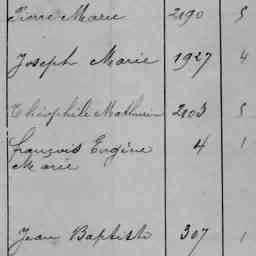 Pierre Marie 2190 5
Joseph Marie 1927 4
Théophile Mathurin 2103 5
François Eugène 4 1
Marie
Jean Baptiste 307 1